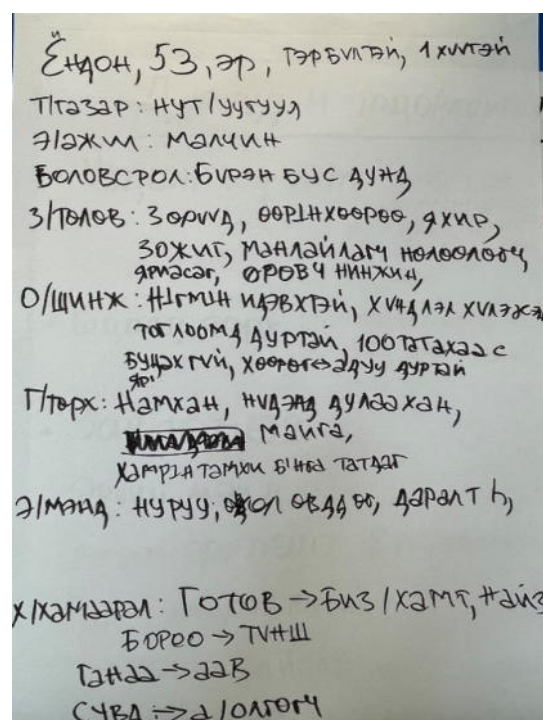 Ёндон, 53, эр, гэрбүлтэй, 1 хүүтэй
Т/газар: нут/уугуул
Э/ажил: малчин
Боловсрол: Бүрэн бус дунд
З/төлөв: Зөрүүд, өөрийнхөөрөө, яхир,
зожиг, манлайлагч нөлөөлөгч,
ярмасаг, өрөвч нинжин,
О/шинж: Нийгмийн идэвхтэй, хүндлэл хүлээсэн
тоглоомд дуртай, 100 татахаас
буцахгүй, хөөрөг ↔ адуу дуртай
ярь
Г/төрх: Намхан, нүдэнд дулаахан,
майга,
хамрын тамхи байнга татдаг
Э/мэнд: нуруу, хөл өвддөг, даралт h,
Х/хамаарал: Готов → Биз/хамт, найз
Бороо → түнш
Ганаа → аав
Сувд → а/олгогч